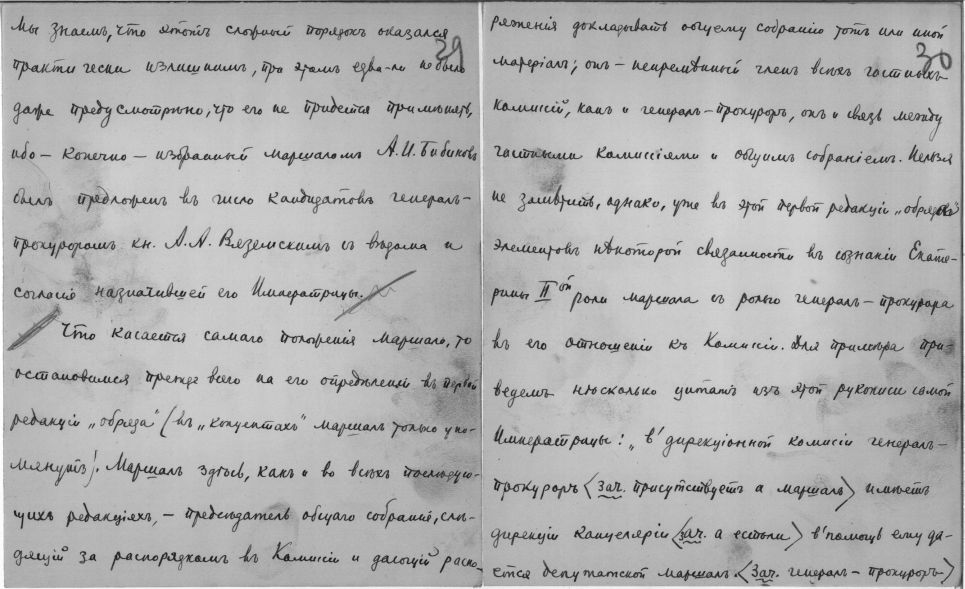 29
мы знаемъ, что этотъ сложный порядокъ оказался
практически излишнимъ, при этомъ едва-ли не было
даже предусмотрѣно, что его не придется примѣнять,
ибо – конечно – избранный маршаломъ А.И. Бибиковъ
былъ предложенъ въ число кандидатовъ генералъ-
прокуроромъ кн. А.А. Вяземскимъ съ вѣдома и
согласія назначившей его Императрицы.
Что касается самаго положенія маршала, то
остановимся прежде всего на его опредѣленіи въ первой
редакціи „обряда" (въ „концептахъ" маршалъ только упо-
мянутъ). Маршалъ здѣсь, какъ и во всѣхъ послѣдую-
щихъ редакціяхъ, – предсѣдатель общаго собранія, слѣ-
дящій за распорядкомъ въ Комисіи и дающій распо-
30
ряженія докладывать общему собранію тотъ или иной
матеріалъ; онъ – непремѣнный членъ всѣхъ частныхъ
комисій, какъ и генералъ-прокуроръ, онъ и связь между
частными комиссіями и общимъ собраніемъ. Нельзя
не замѣтить, однако, уже въ этой первой редакціи „обряда"
элементовъ нѣкоторой связанности въ сознаніи Екате-
рины II ой роли маршала съ ролью генералъ-прокурора
въ его отношеніи къ Комисіи. Для примѣра при-
ведемъ нѣсколько цитатъ изъ этой рукописи самой
Императрицы: „в' дирекціонной комисіи генералъ-
прокуроръ <зач. присутствуетъ а маршалъ> имѣетъ
дирекцій канцеляріи <зач. а естьли> в'помощь ему да-
ется депутатской маршалъ. <Зач. генералъ-прокуроръ>